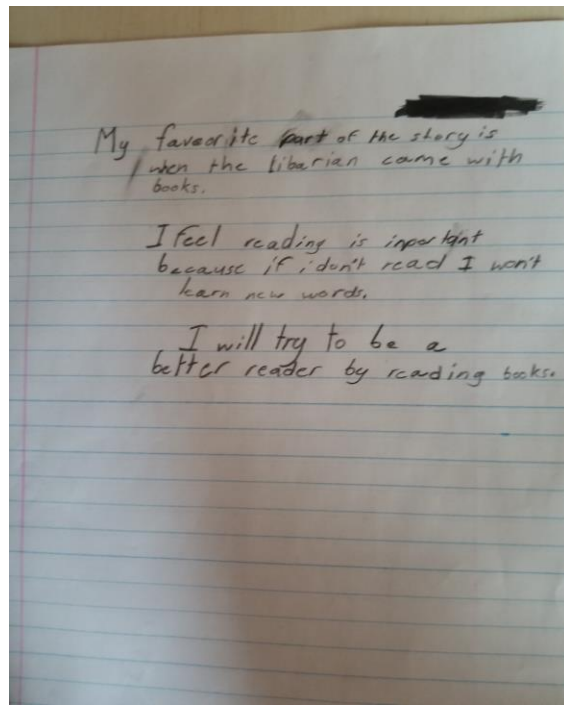 My favorite part of the story is
when the libarian came with
books.
I feel reading is inportant
because if i don't read I won't
learn new words.
I will try to be a
better reader by reading books.